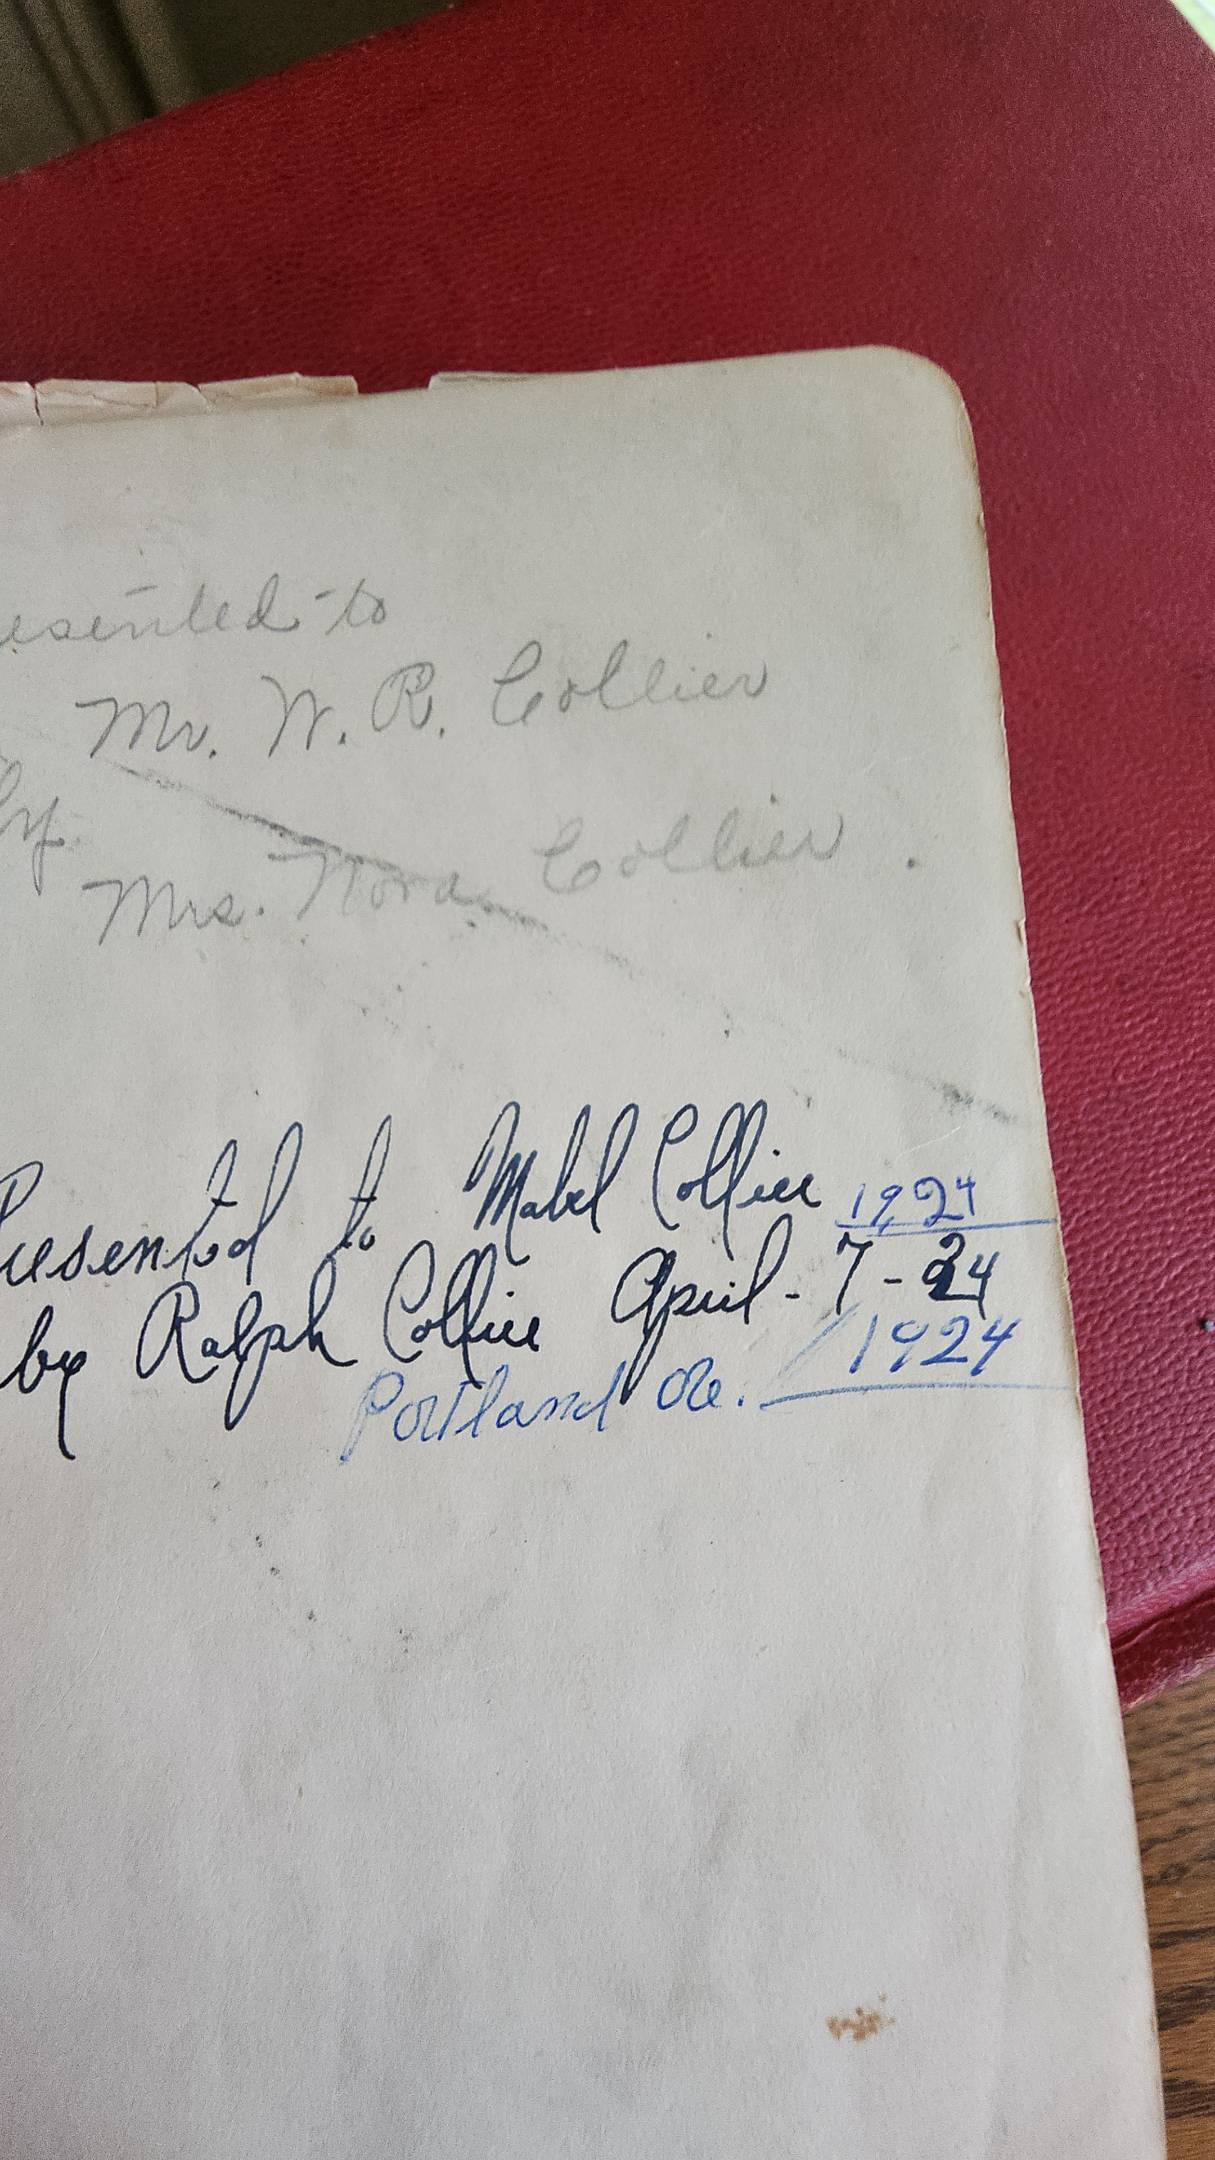 esented to
Mr. W. R. Collier
by
Mrs. Nora Collier.
Presented to Mabel Collier 1924
by Ralph Collier April - 7 - 24
Portland Ore. 1924